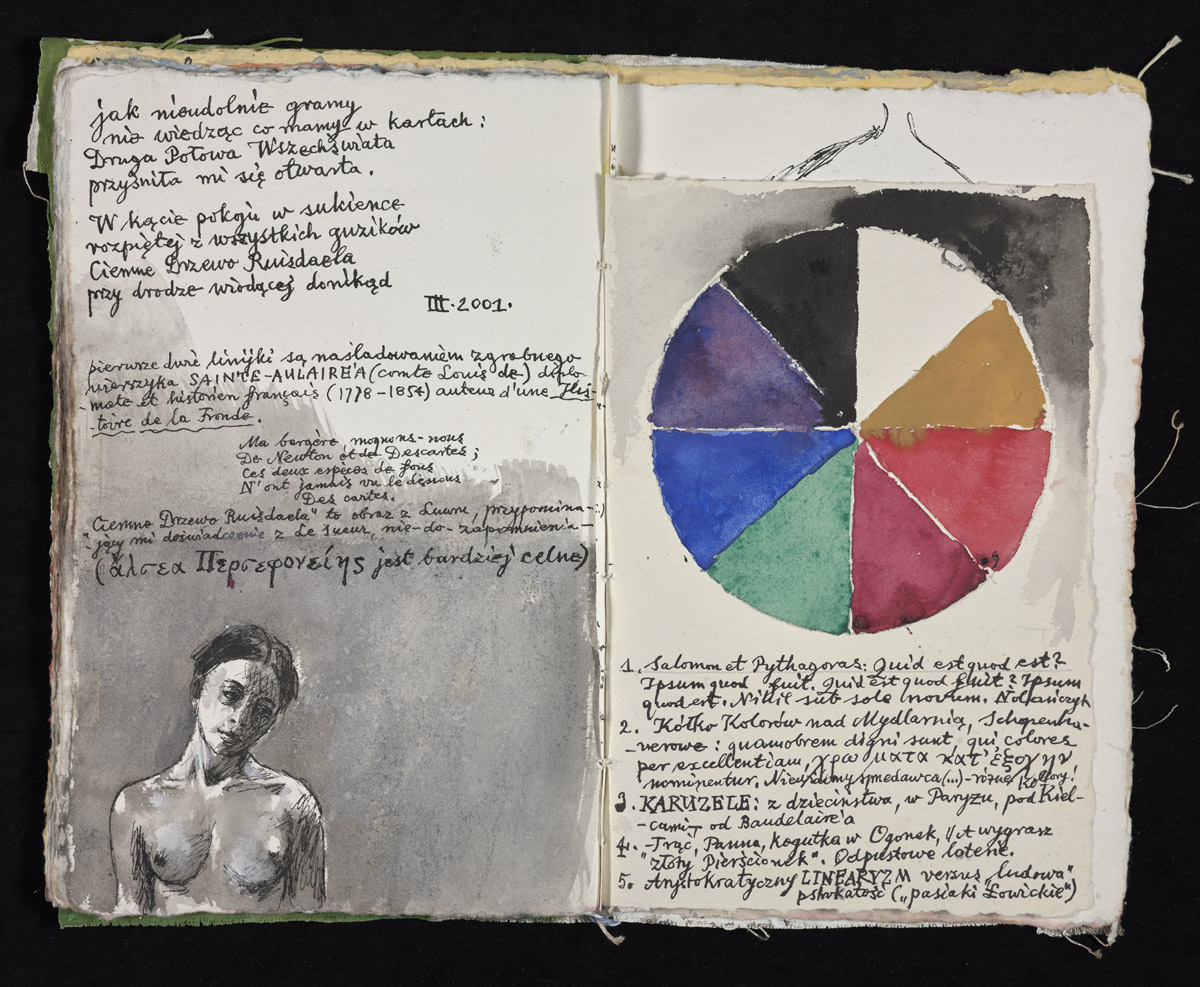 jak nieudolnie gramy
nie wiedząc co mamy w kartach :
Druga Połowa Wszechświata
przyśniła mi się otwarta.
W kącie pokoju w sukience
rozpiętej z wszystkich guzików
Ciemne Drzewo Ruisdaela
przy drodze wiodącej donikąd
III.2001.
pierwsze dwie linijki są naśladowaniem zgrabnego
wierszyka SAINTE-AULAIRE'A (comte Louis de) diplo-
mate et historien français (1778-1854) auteur d'une His-
-toire de la Fronde.
Ma bergère, moquons-nous
De Newton et de Descartes ;
Ces deux espèces de fous
N'ont jamais vu le dessous
Des cartes.
"Ciemne Drzewo Ruisdaela" to obraz z Luwru, przypomina-
jący mi doświadczenie z Le Sueur, nie-do-zapomnienia
(ἄλσεα Περσεφονείης jest bardziej celne)
1. Salomon et Pythagoras: Quid est quod est?
Ipsum quod fuit. Quid est quod fuit? Ipsum
quod est. Nihil sub sole novum. Nolańczyk
2. Kółko Kolorów nad Mydlarnią, Schopenha-
-verowe : quamobrem digni sunt, qui colores
per excellentiam, χρωματα κατ' ἐξοχην
nominentur. Niewidomy sprzedawca (...) - różne kolory!
3. KARUZELE: z dzieciństwa, w Paryżu, pod Kiel-
-cami, od Baudelaire'a
4. -Trąć, Panna, kogutka w Ogonek, "A wygrasz
"Złoty Pierścionek". Odpustowe loterie.
5. Arystokratyczny LINEARYZM versus „ludowa"
pstrokatość („pasiaki Łowickie")